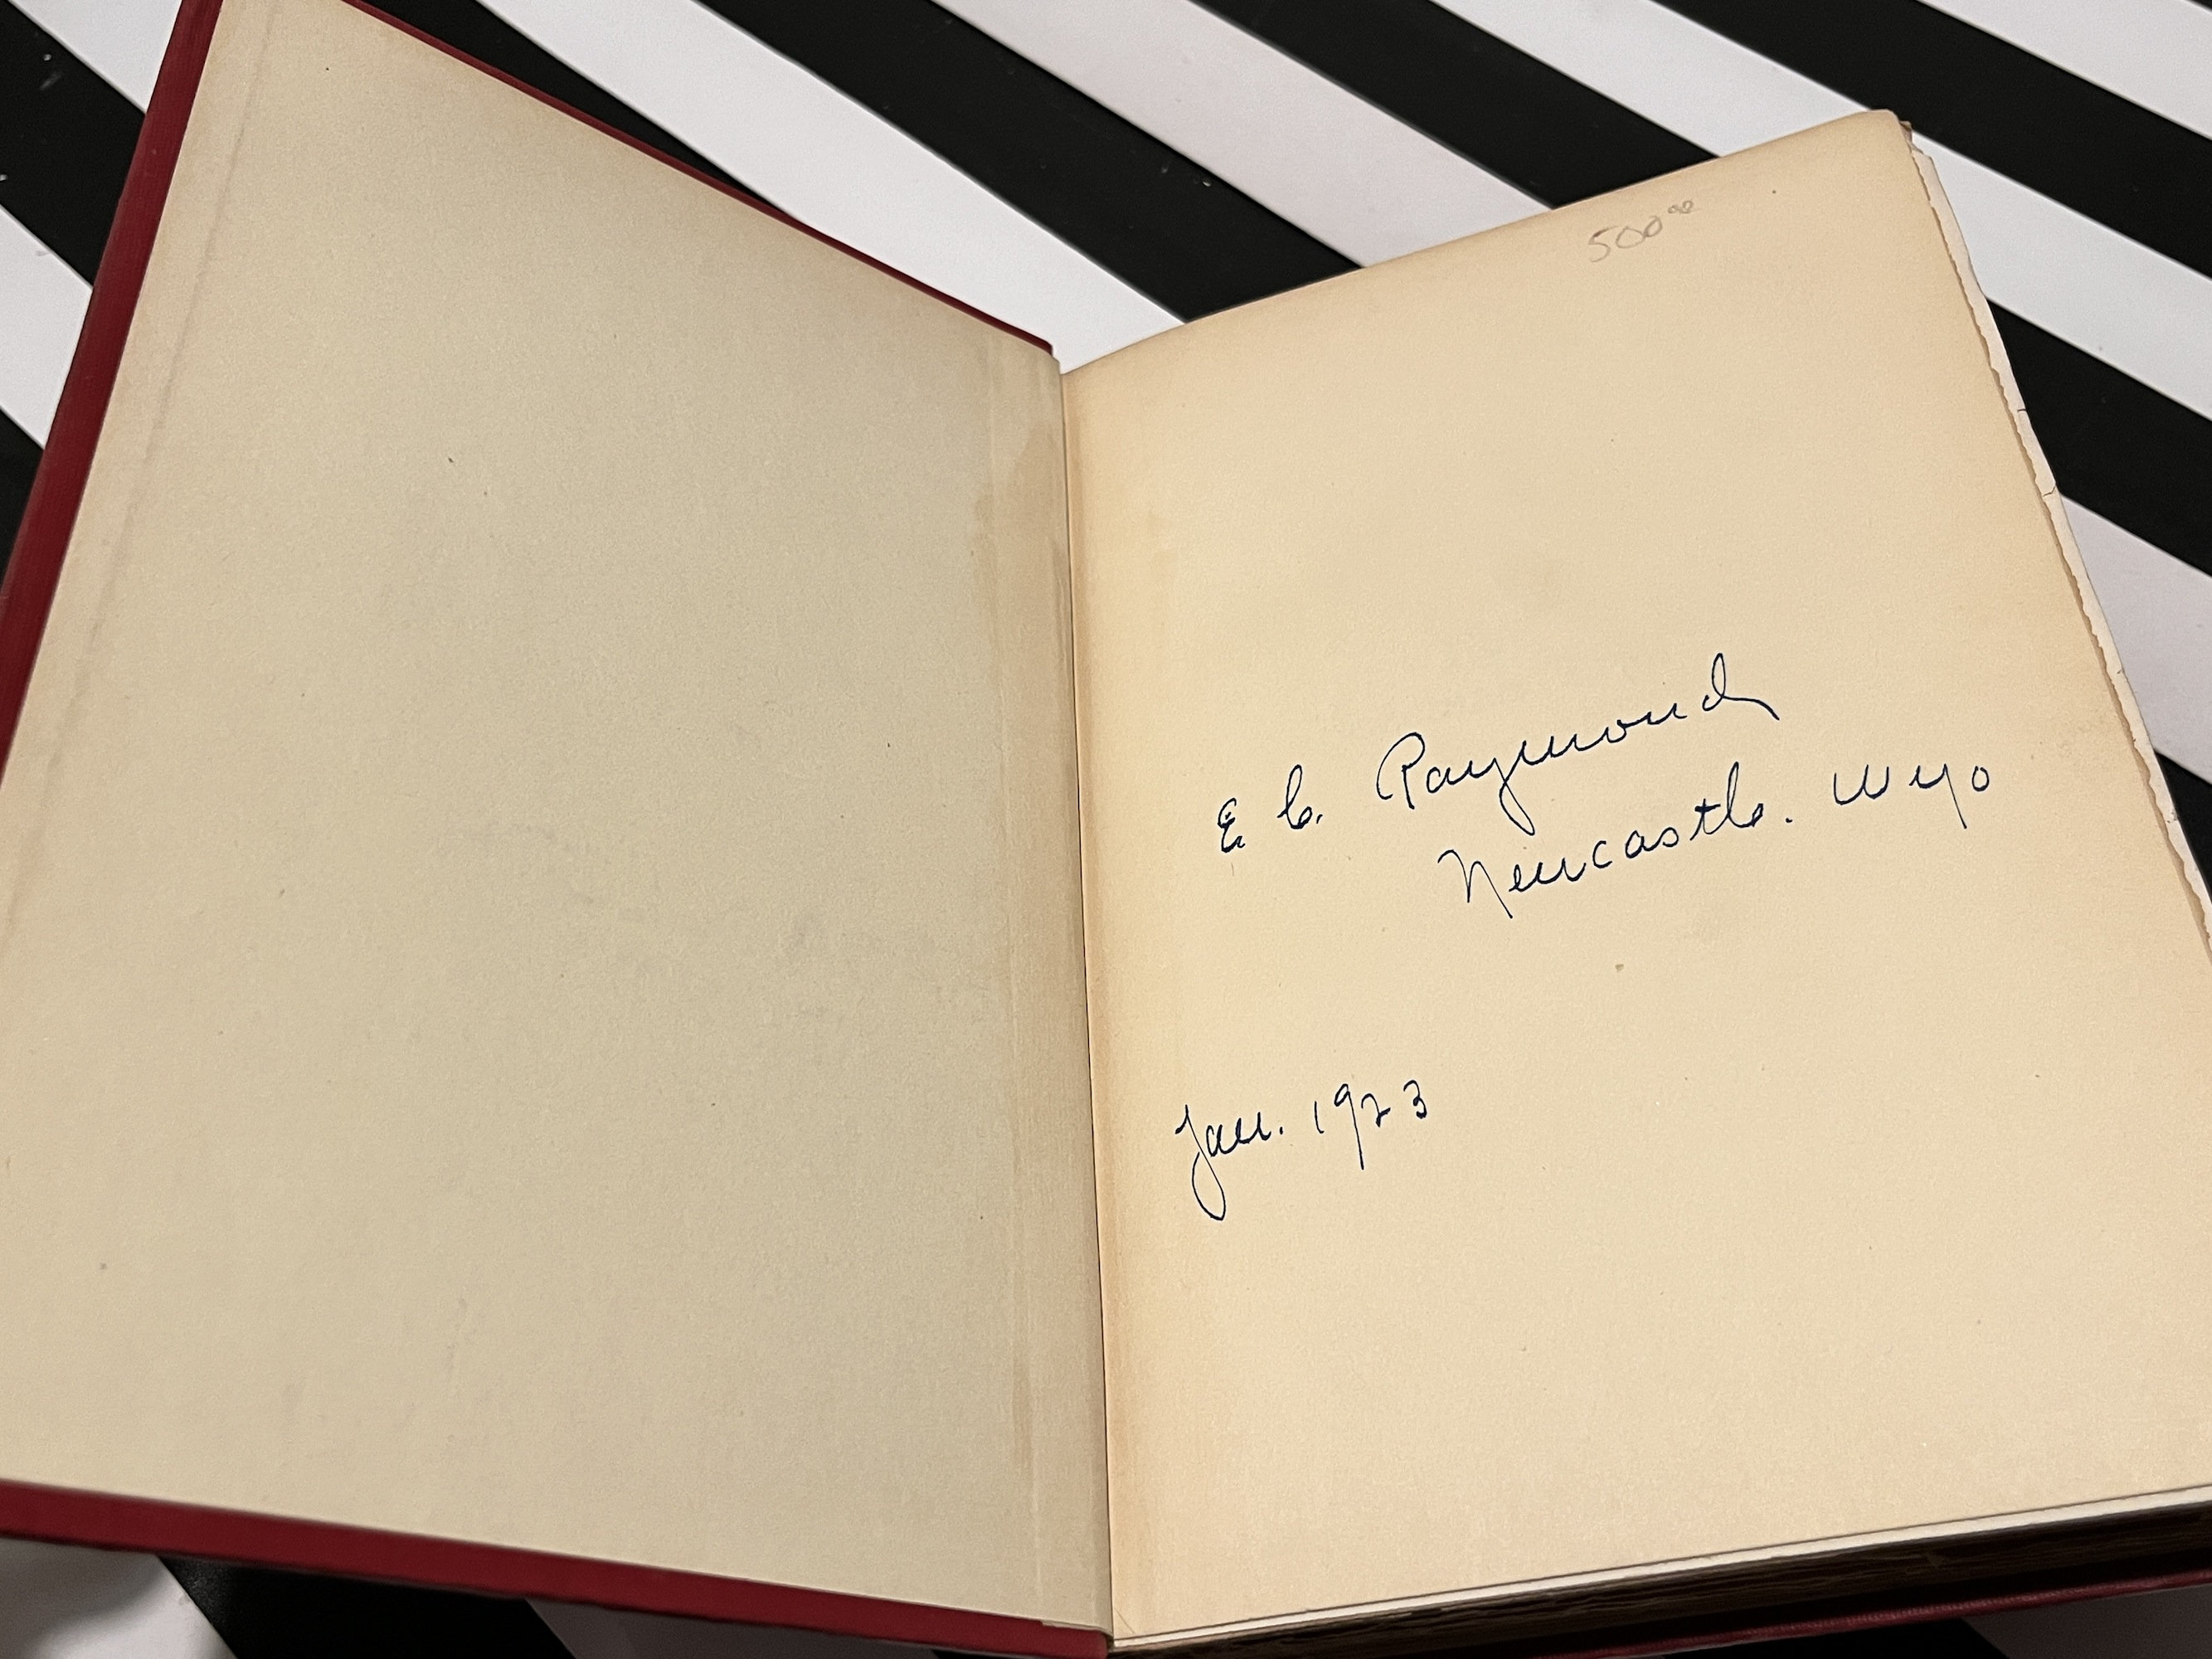 500⁰⁰
E C. Raymond
Newcastle. Wyo
Jan. 1923